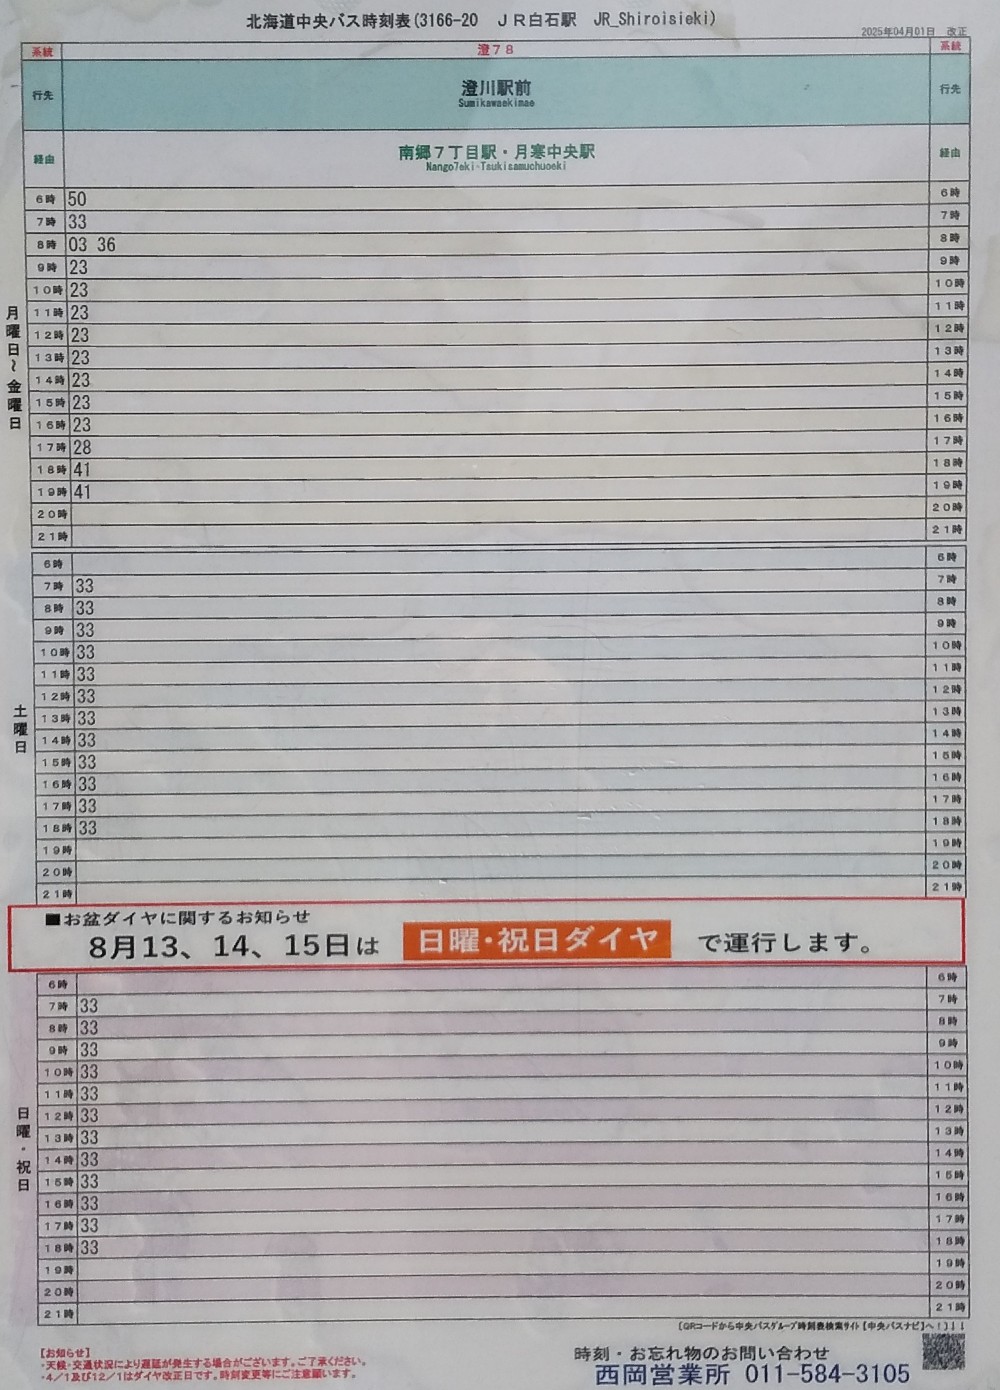 北海道中央バス時刻表(3166-20　ＪＲ白石駅　JR_Shiroisieki)
2025年04月01日　改正
系統 澄７８ 系統
行先 澄川駅前 行先
Sumikawaekimae
経由 南郷７丁目駅・月寒中央駅 経由
Nango7eki-Tsukisamuchuoeki
月曜日～金曜日
6時 50 6時
7時 33 7時
8時 03 36 8時
9時 23 9時
10時 23 10時
11時 23 11時
12時 23 12時
13時 23 13時
14時 23 14時
15時 23 15時
16時 23 16時
17時 28 17時
18時 41 18時
19時 41 19時
20時 20時
21時 21時
土曜日
6時 6時
7時 33 7時
8時 33 8時
9時 33 9時
10時 33 10時
11時 33 11時
12時 33 12時
13時 33 13時
14時 33 14時
15時 33 15時
16時 33 16時
17時 33 17時
18時 33 18時
19時 19時
20時 20時
21時 21時
■お盆ダイヤに関するお知らせ
8月13、14、15日は 日曜・祝日ダイヤ で運行します。
日曜・祝日
6時 6時
7時 33 7時
8時 33 8時
9時 33 9時
10時 33 10時
11時 33 11時
12時 33 12時
13時 33 13時
14時 33 14時
15時 33 15時
16時 33 16時
17時 33 17時
18時 33 18時
19時 19時
20時 20時
21時 21時
【QRコードから中央バスグループ時刻表検索サイト【中央バスナビ】へ！】↓↓
【お知らせ】
・天候・交通状況により遅延が発生する場合がございます。ご了承ください。
・4／1及び12／1はダイヤ改正日です。時刻変更等にご注意願います。
時刻・お忘れ物のお問い合わせ
西岡営業所 011-584-3105